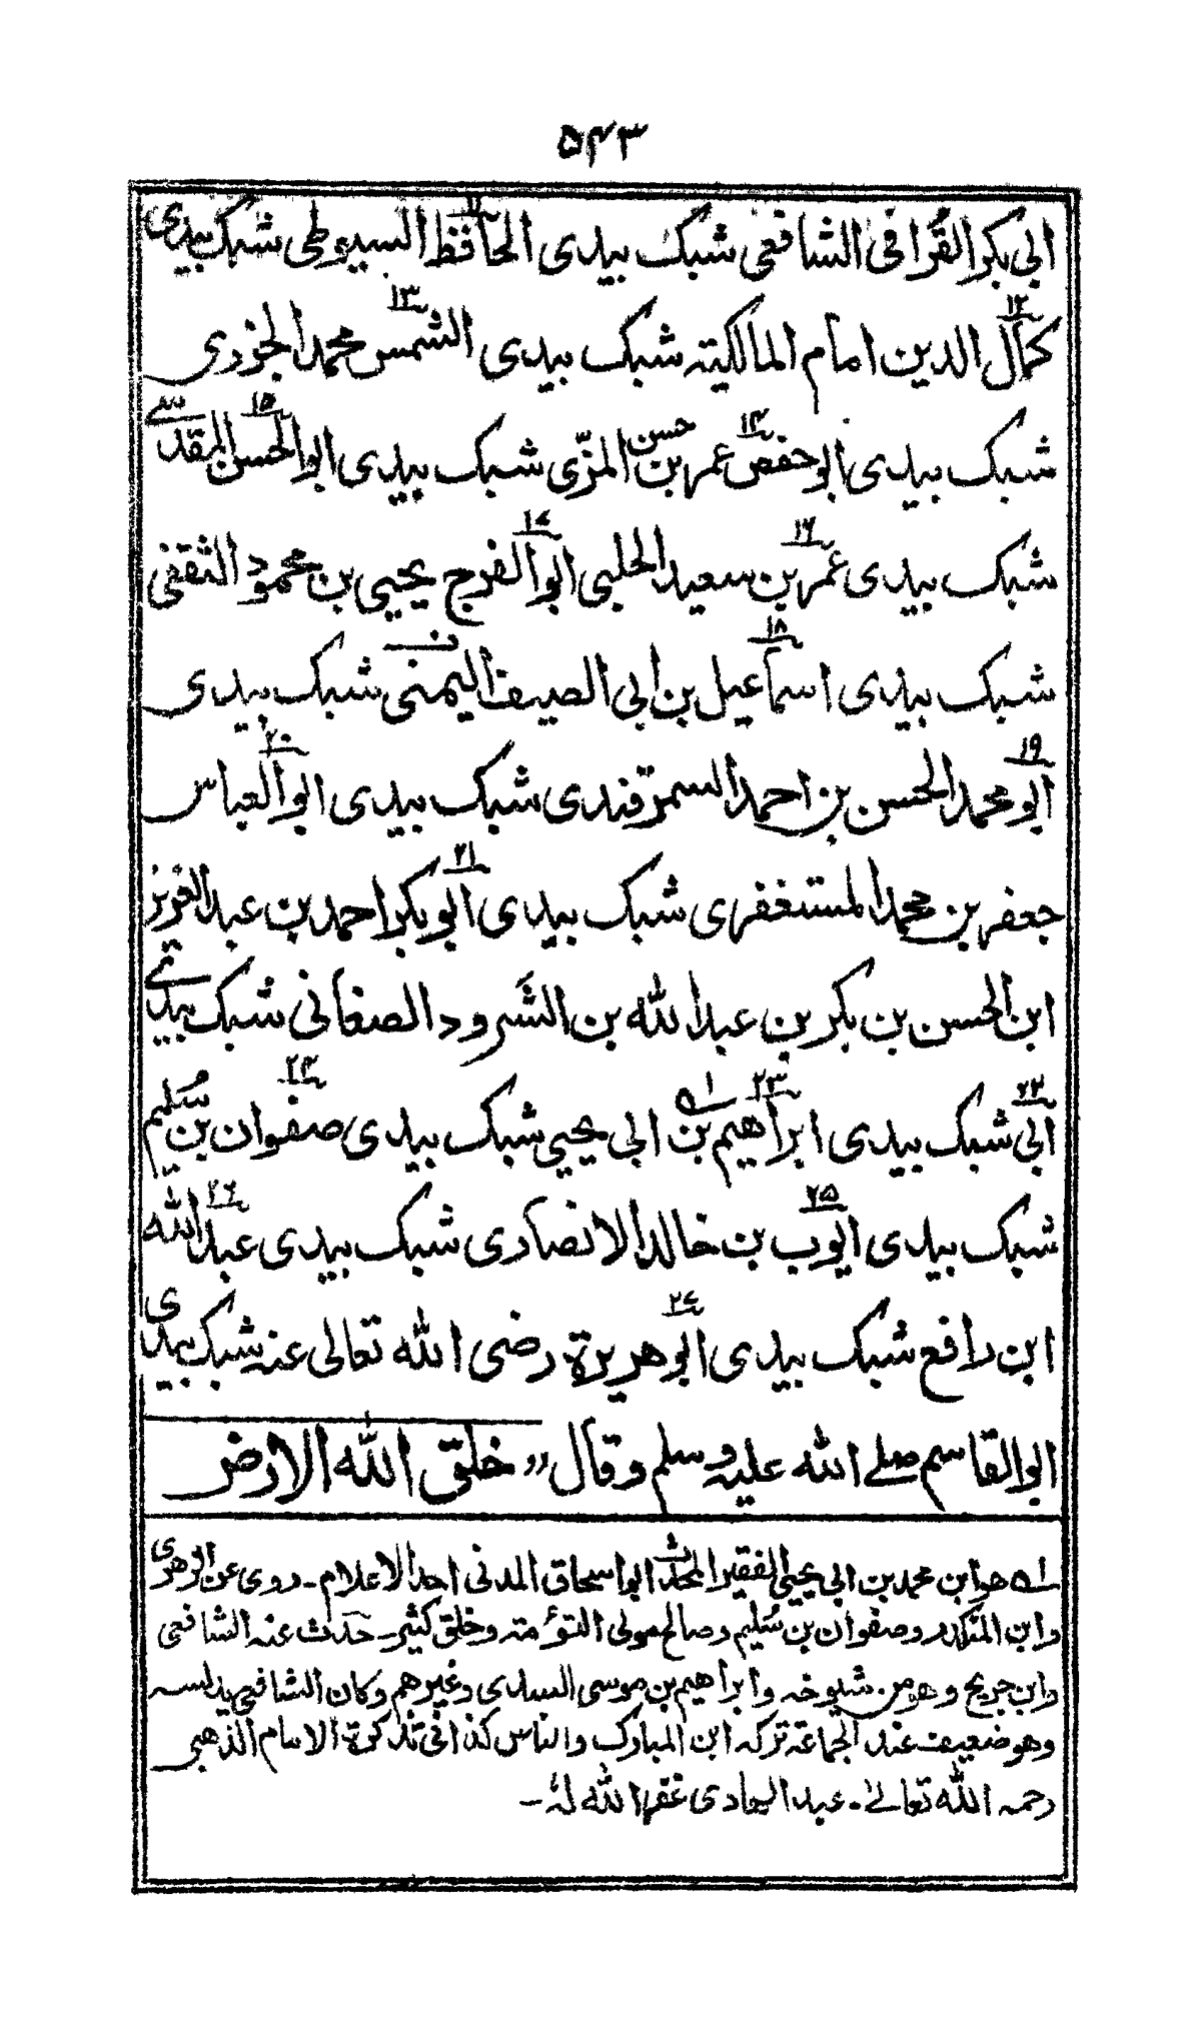 ۵۴۳
ابی بکر القُرافی الشافعی شبک بیدی الحافظ ۱۱ السیوطی شبک بیدی
کمال ۱۲ الدین امام المالکیة شبک بیدی الشمس ۱۳ محمد الجزری
شبک بیدی ابوحفص ۱۴ عمر بن حسن المزّی شبک بیدی ابوالحسن ۱۵ المقدسی
شبک بیدی عمر ۱۶ بن سعید الحلبی ابوالفرج ۱۷ یحیی بن محمود الثقفی
شبک بیدی اسماعیل ۱۸ بن ابی الصیف الیمنی شبک بیدی
ابو ۱۹ محمد الحسن بن احمد السمرقندی شبک بیدی ابوالعباس ۲۰
جعفر بن محمد المستغفری شبک بیدی ابوبکر ۲۱ احمد بن عبدالعزیز
ابن الحسن بن بکر بن عبدالله بن الشَّرود الصغانی شبک بیدی
ابی ۲۲ شبک بیدی ابراهیم ۲۳ بن ابی یحیی شبک بیدی صفوان ۲۴ بن سُلیم
شبک بیدی ایوب ۲۵ بن خالد الانصاری شبک بیدی عبدالله ۲۶
ابن رافع شبک بیدی ابوهریرة ۲۷ رضی الله تعالی عنه شبک بیدی
ابوالقاسم صلے الله علیه وسلم وقال ״ خلق الله الارض
هو ابن محمد بن ابی یحیی الفقیر المحدث ابو اسحاق المدنی احد الاعلام۔ روی عن الزهری
وابن المنکدر وصفوان بن سُلیم وصالح مولی التوءمة وخلق کثیر۔ حدث عنه الشافعی
وابن جریج وهو من شیوخه وابراهیم بن موسی السدی وغیرهم وکان الشافعی یدلسه
وهو ضعیف عند الجماعة ترکه ابن المبارک والناس کذا فی تذکرة الامام الذهبی
رحمه الله تعالےٰ۔ عبد الهادی غفر الله لهٗ۔